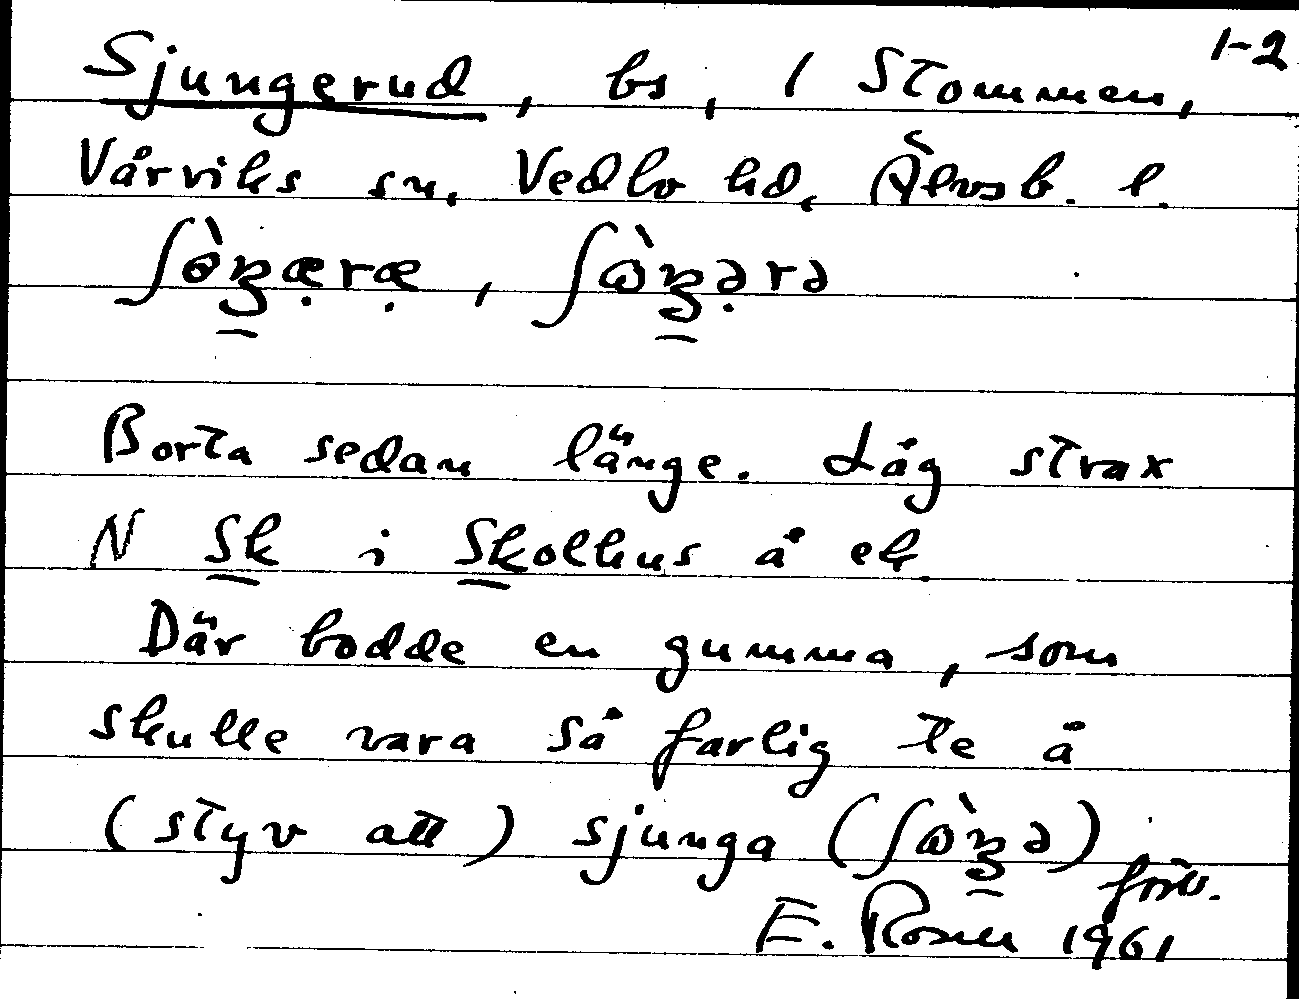 1-2
Sjungerud, bs, 1 Stommen,
Vårviks sn, Vedbo hd, Älvsb. l.
Borta sedan länge. Låg strax
N Sk i Skolhus å ek.
Där bodde en gumma, som
skulle vara så farlig te å
(styv att) sjunga
E. Rosell 1961